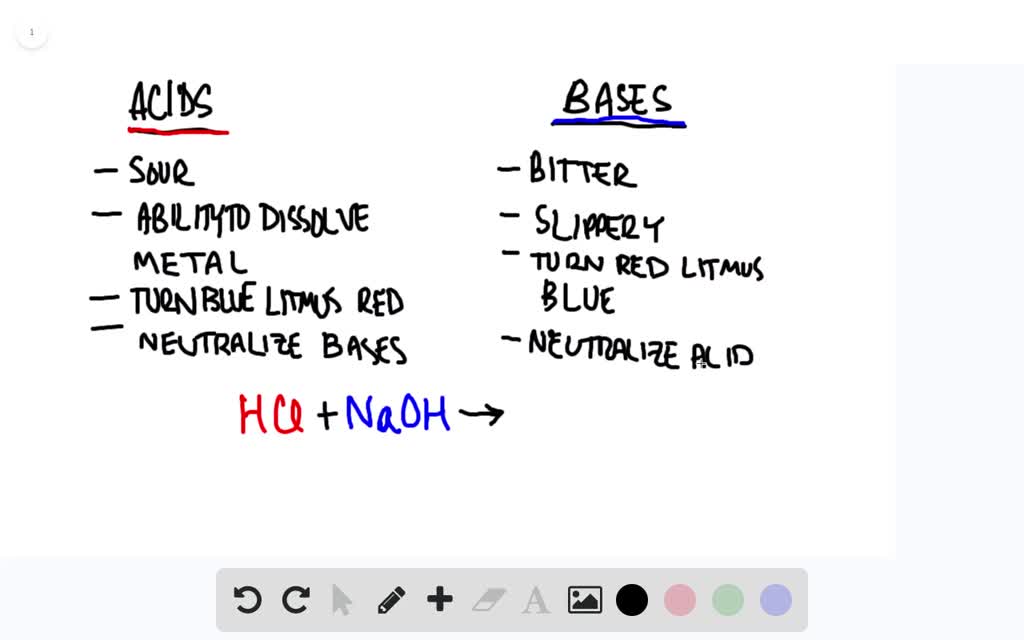 1
ACIDS
BASES
– SOUR
– ABILITY TO DISSOLVE
METAL
– TURN BLUE LITMUS RED
– NEUTRALIZE BASES
– BITTER
– SLIPPERY
– TURN RED LITMUS
BLUE
– NEUTRALIZE ACID
HCl + NaOH →
A